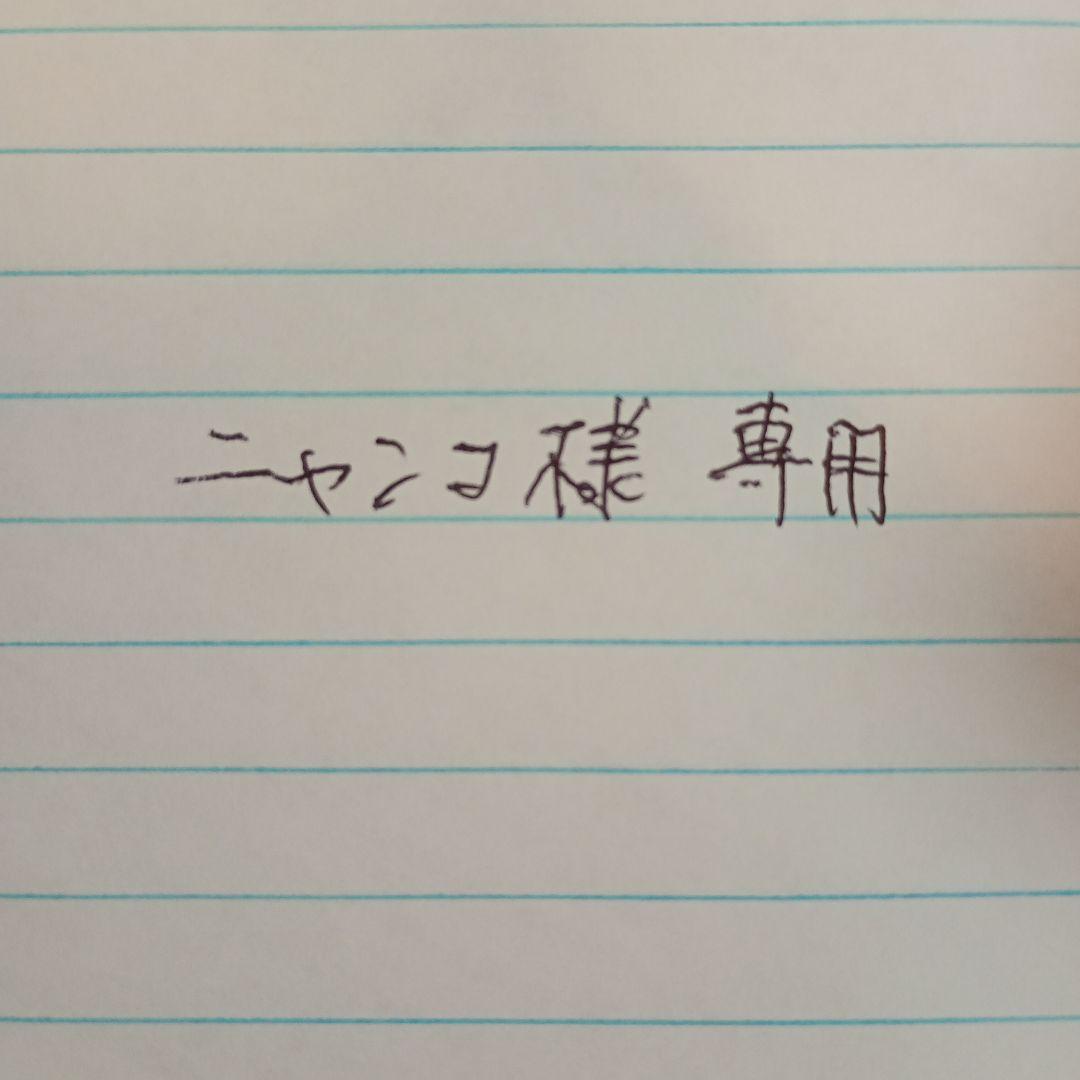 ニャンコ様 専用